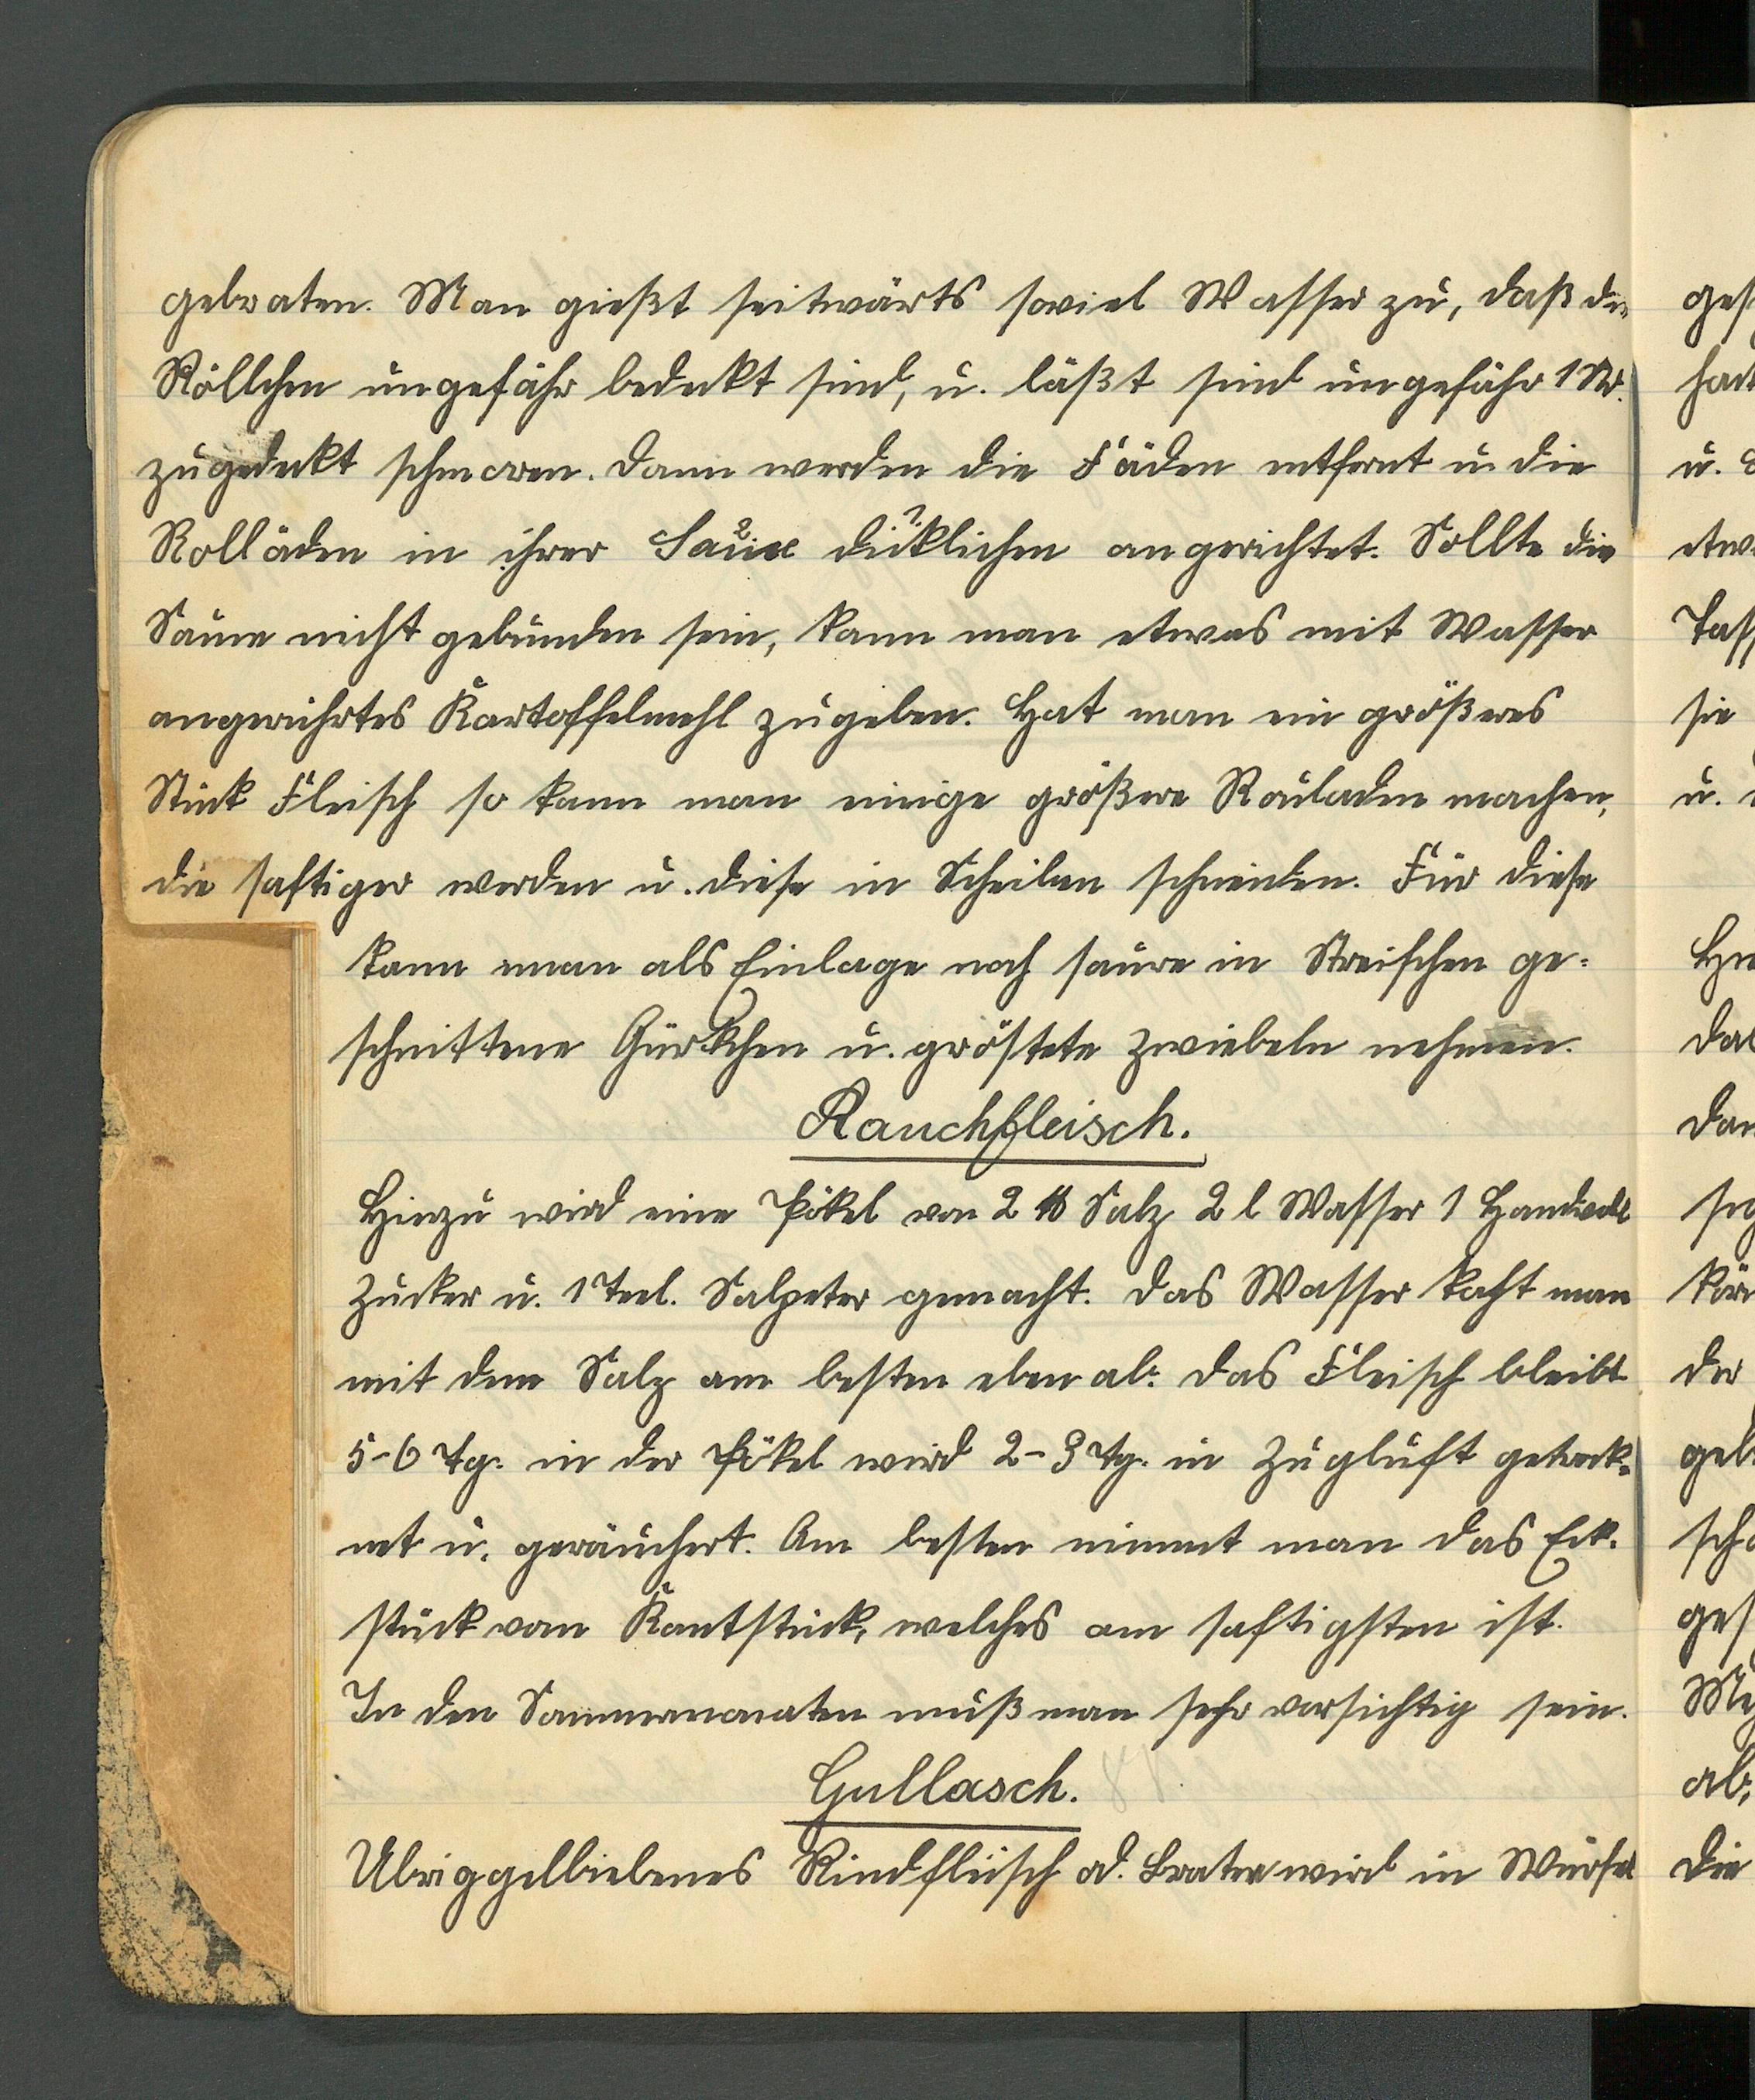 gebraten. Man gießt seitwärts soviel Wasser zu, daß die
Röllchen ungefähr bedeckt sind, u. läßt sind ungefähr 1 St.
zugedeckt schmoren. Dann werden die Fäden entfernt u. die
Rolläden in ihrer angerichtet. Sollte die
nicht gebunden sein, kann man etwas mit Wasser
angerührtes Kartoffelmehl zugeben. Hat man ein größeres
Stück Fleisch so kann man einige größere Rouladen machen,
die saftiger werden u. diese in Scheiben schneiden. Für diese
kann man als Einlage noch saure in Streifchen ge-
schnittene Gürkchen u. gröstete Zwiebeln nehmen.
Rauchfleisch.
Hinzu wird eine Pökel von 2 ℔ Salz 2 l Wasser 1 Handvoll
Zucker u. 1 Teel. Salpeter gemacht. Das Wasser kocht man
mit dem Salz am besten eben ab. Das Fleisch bleibt
5-6 Tg. in der Pökel wird 2-3 Tg. in Zugluft getrock-
net u. geräuchert. Am besten nimmt man das Eck-
stück vom Kantstück, welches am saftigsten ist.
In den Sommermonaten muß man sehr vorsichtig sein.
Gullasch.
Übriggelbiebenes Rindfleisch od. Braten wird in Würfel